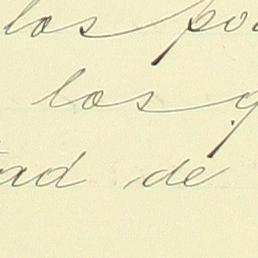 los po
los q
ad de